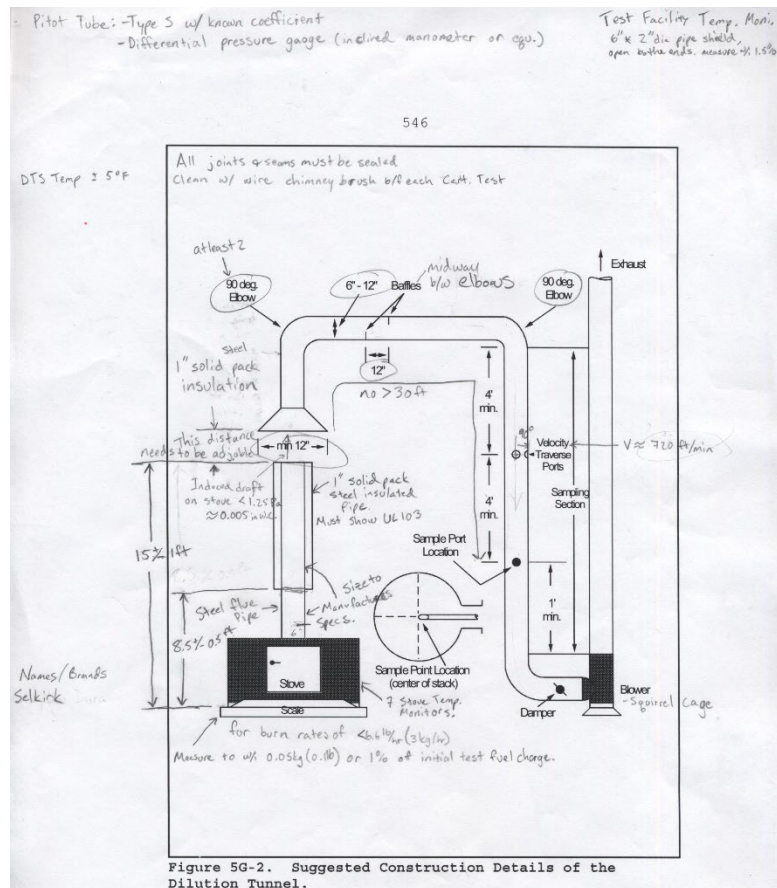 Pitot Tube: -Type S w/ known coefficient
-Differential pressure gauge (inclined manometer or equ.)
Test Facility Temp. Moni.
6" x 2" dia pipe shield,
open both ends. measure +/- 1.5%
546
All joints & seams must be sealed
Clean w/ wire chimney brush b/f each Cert. Test
DTS Temp ± 5°F
at least 2
90 deg.
Elbow
6" - 12"
Baffles
midway
b/w elbows
90 deg.
Elbow
Exhaust
steel
1" solid pack
insulation
12"
no > 30 ft
4'
min.
This distance
needs to be adjable
min 12"
90°
Velocity
Traverse
Ports
V ≈ 720 ft/min
Induced draft
on stove < 1.25 Pa
≈ 0.005 in w.c.
1" solid pack
steel insulated
pipe.
Must show UL103
4'
min.
Sampling
Section
15 +/- 1ft
Sample Port
Location
Size to
Manufactures
Specs.
Steel flue
Pipe
6"
1'
min.
8.5 +/- 0.5 ft
Names/Brands
Selkirk
Stove
Sample Point Location
(center of stack)
7 Stove Temp.
Monitors.
Scale
Damper
Blower
-Squirrel Cage
for burn rates of <6.6 lb/hr (3kg/hr)
Measure to w/i 0.05kg (0.1lb) or 1% of initial test fuel charge.
Figure 5G-2. Suggested Construction Details of the
Dilution Tunnel.